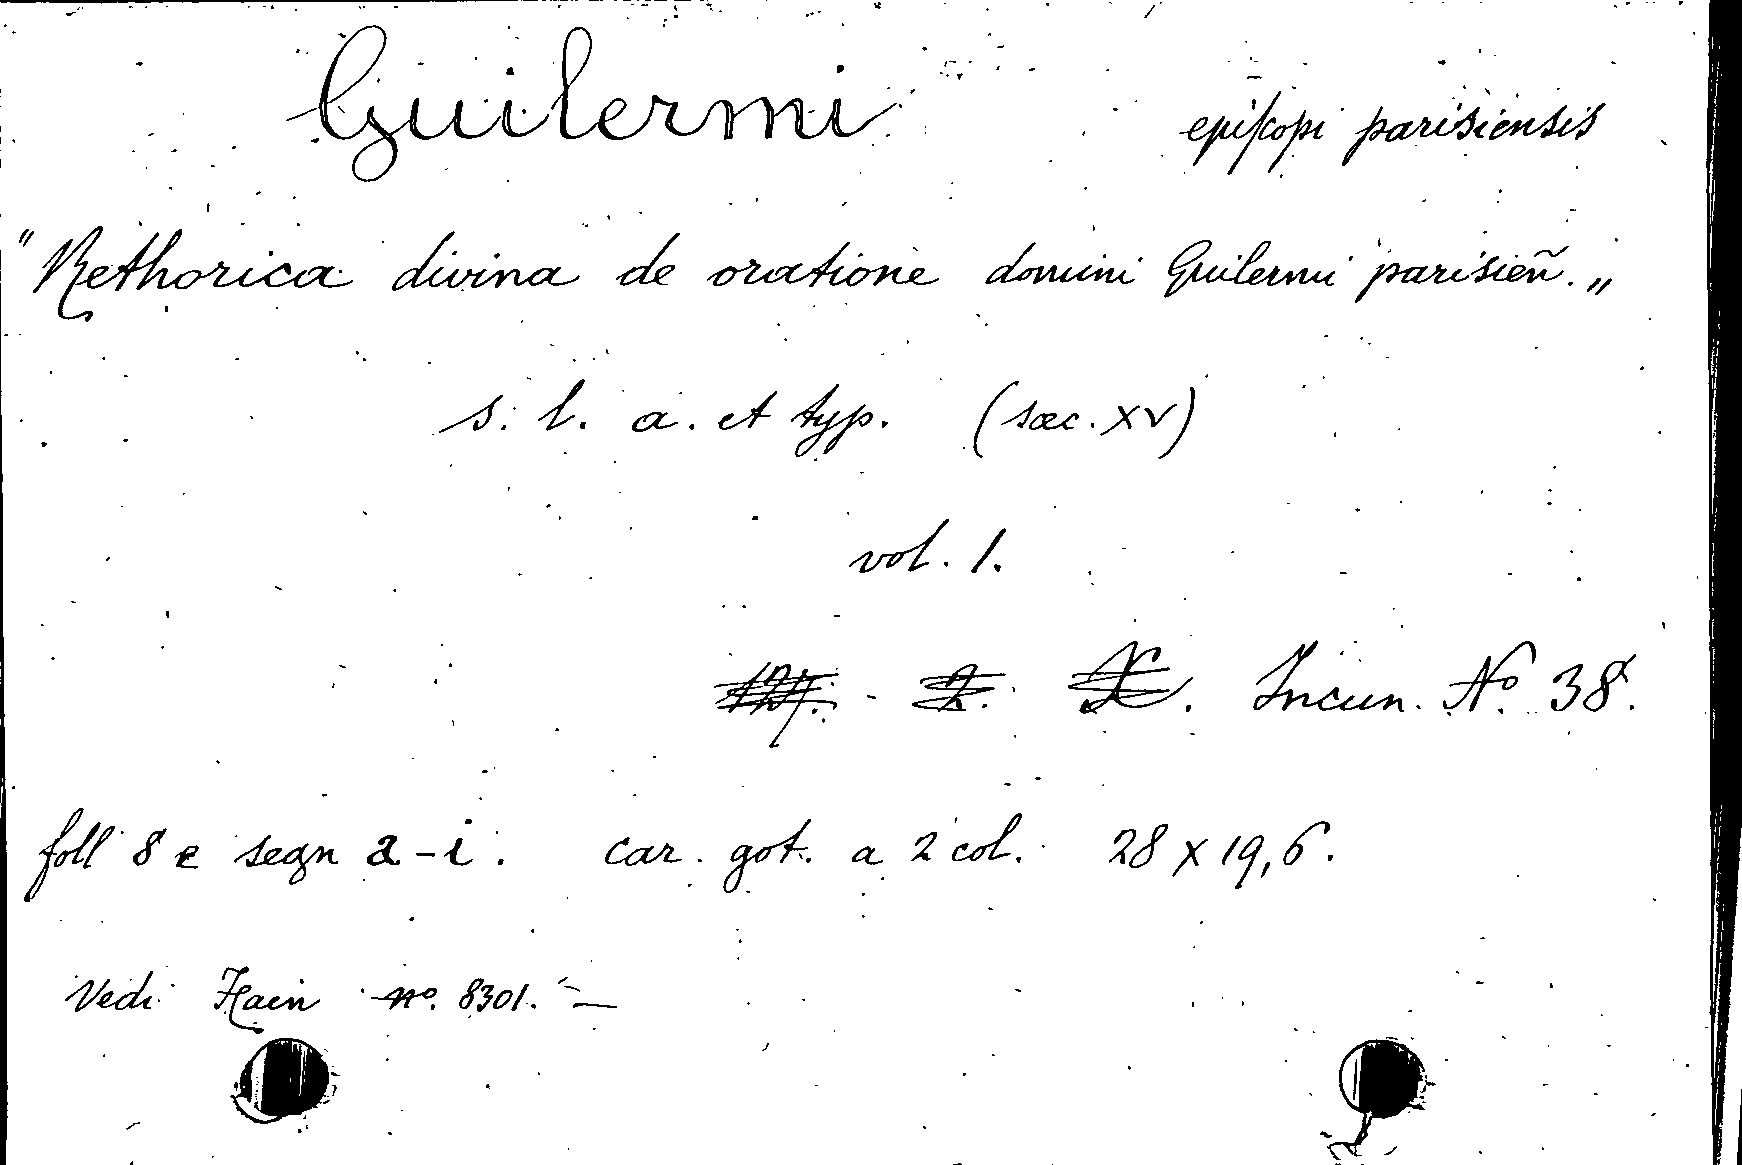 Guilermi epiſcopi parisiensis
"Rethorica divina de oratione domini Guilermi parisieñ.„
s. l. a. et typ. (sæc. XV)
vol. 1.
Incun. Nº 38.
foll 8 e segn a-i. car. got. a 2 col. 28 x 19,6.
Vedi Hain nº. 8301. —